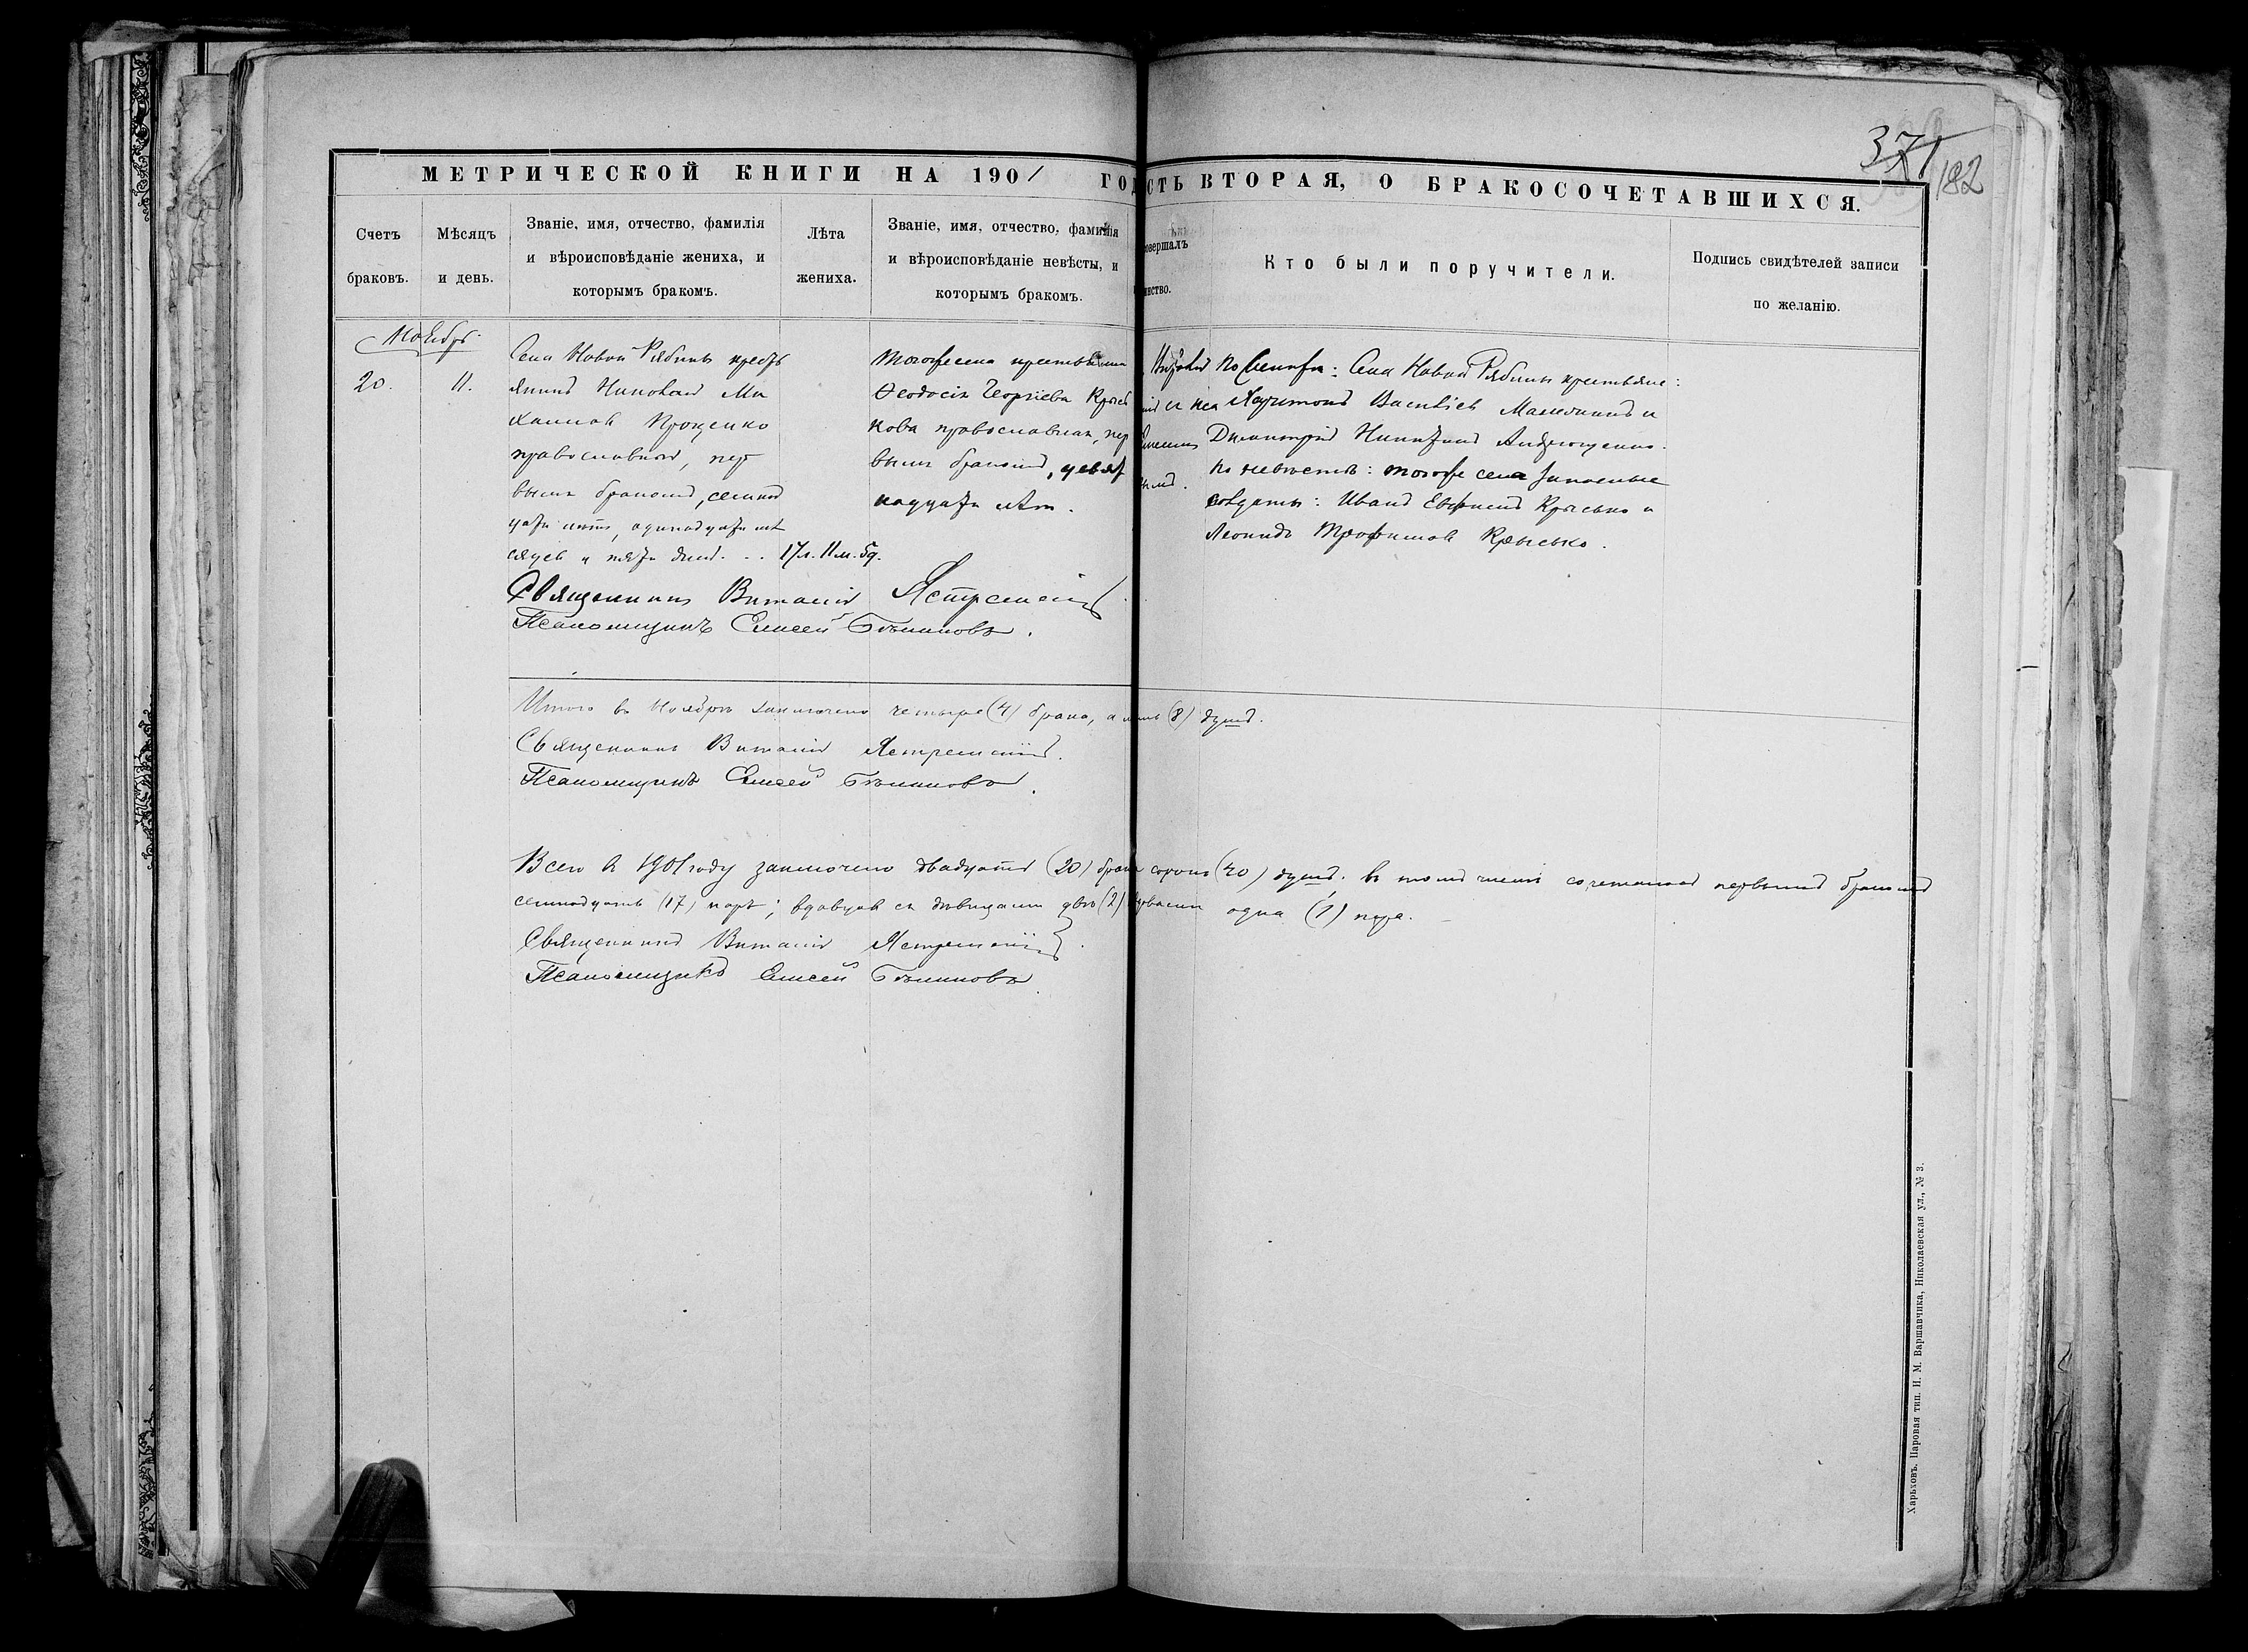 371
182
МЕТРИЧЕСКОЙ КНИГИ НА 1901 ГОД
СТЬ ВТОРАЯ, О БРАКОСОЧЕТАВШИХСЯ.
Счетъ браковъ.
Мѣсяцъ и день.
Званіе, имя, отчество, фамилія
и вѣроисповѣданіе жениха, и
которымъ бракомъ.
Лѣта жениха.
Званіе, имя, отчество, фамилія
и вѣроисповѣданіе невѣсты, и
которымъ бракомъ.
совершалъ
инство.
Кто были поручители.
Подпись свидѣтелей записи
по желанію.
Ноябрь
20.
11.
Села Новой Рябины кресть
янинъ Михаиловъ Прощенко
православный, пер
вымъ бракомъ, семнад
цати лѣтъ, одинадцати мѣ
сяцев и пяти дней. .. 17 л. 11 м. 5 д.
Тогоже села крестьянка
Ѳеодосія Георгіева Крысь
кова православная, пер
вымъ бракомъ, девят
надцати лѣт.
По женихѣ: Села Новой Рябины крестьяне:
Харитонъ Василіев и
Димитрій Никитинъ Андрющенко.
По невѣстѣ: тогоже села запасные
солдаты: Иванъ Евфимов Крысько и
Леонидъ Трофимов Крысько.
Священникъ Виталій Ястремскій
Псаломщикъ Елисей Бѣликовъ.
Итого въ Ноябрѣ заключено четыре (4) брака, а лицъ (8) душъ.
Священникъ Виталій Ястремскій.
Псаломщикъ Елисей Бѣликовъ.
Всего в 1901 году заключено двадцать (20) брак сорокъ (40) душъ. въ томъ числѣ сочетаний первымъ бракомъ
семнадцать (17) паръ; вдовцов съ дѣвицами двѣ (2) вдовами одна (1) пара.
Священникъ Виталій Ястремскій.
Псаломщикъ Елисей Бѣликовъ.
Харьковъ. Паровая тип. И. М. Варшавчика, Николаевская ул., № 3.